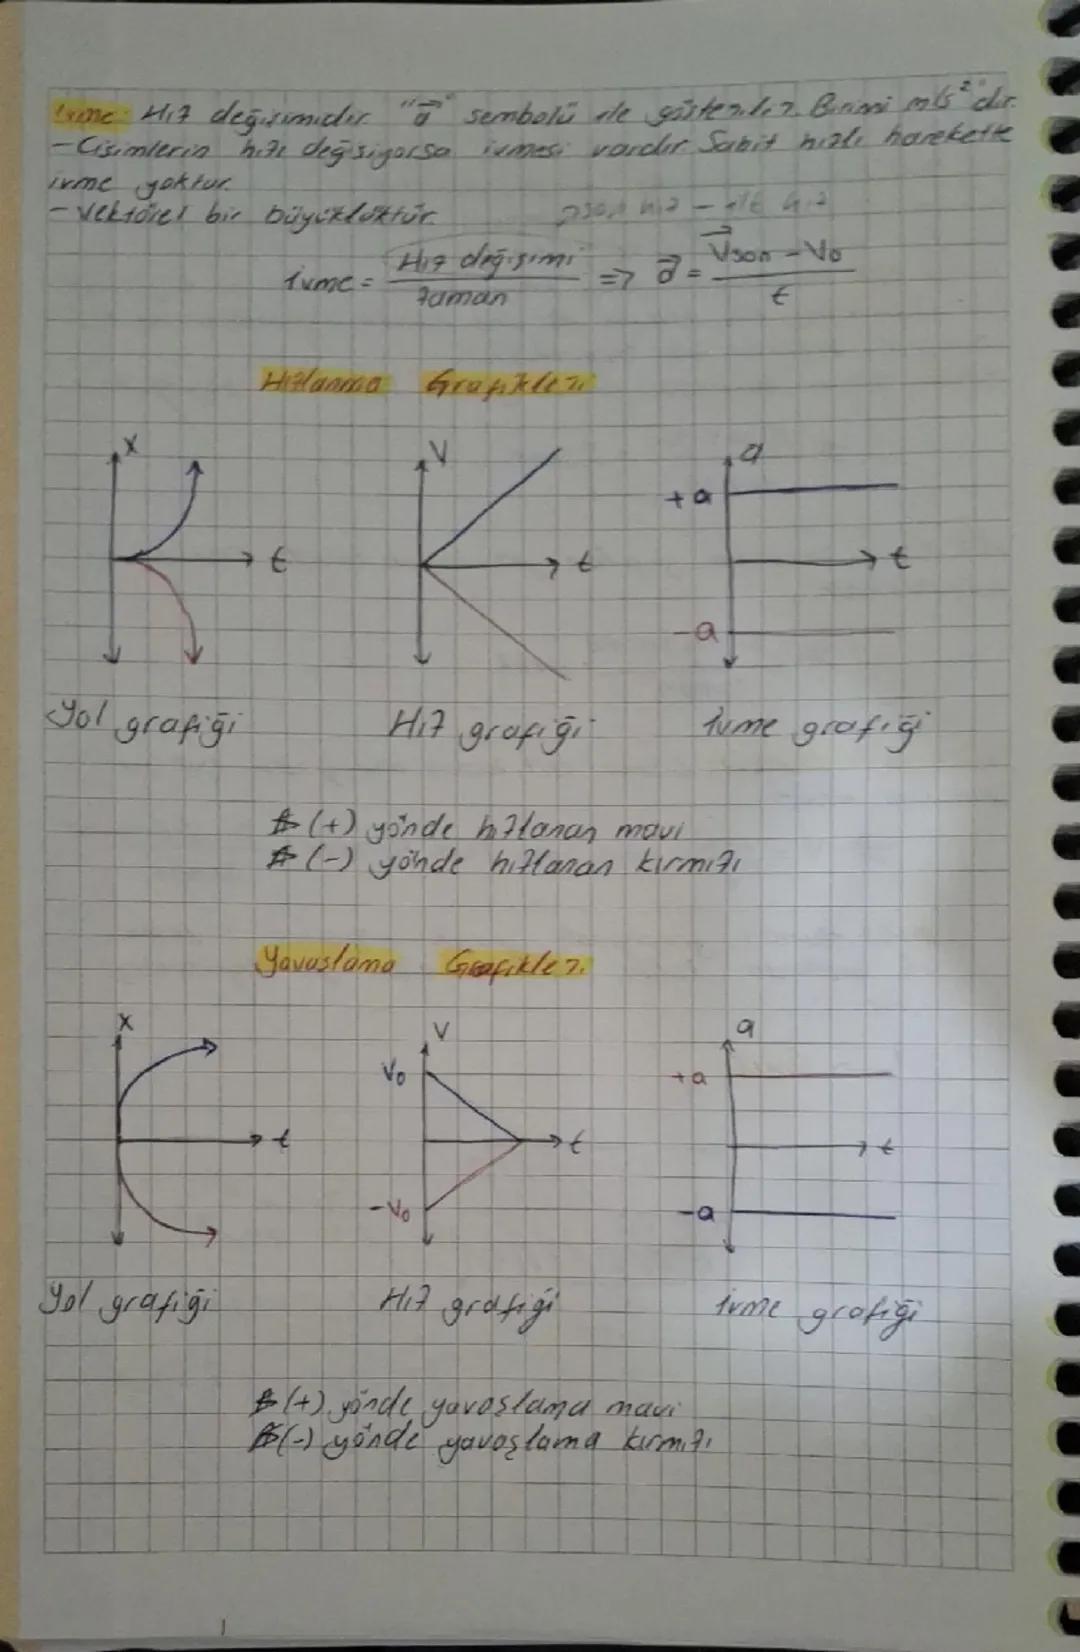 İvme: Hız değişimidir. "a⃗" sembolü ile gösterilir. Birimi m/s²'dir.
- Cisimlerin hızı değişiyorsa ivmesi vardır. Sabit hızlı harekette
ivme yoktur.
- Vektörel bir büyüklüktür.
son hız - ilk hız
İvme = Hız değişimi / Zaman ⇒ a⃗ = V⃗son - V₀ / t
Hızlanma Grafikleri
x t
V t
a +a t -a
Yol grafiği Hız grafiği İvme grafiği
(+) yönde hızlanan mavi
(-) yönde hızlanan kırmızı
Yavaşlama Grafikleri
x t
V V₀ t -V₀
a +a t -a
Yol grafiği Hız grafiği İvme grafiği
(+) yönde yavaşlama mavi
(-) yönde yavaşlama kırmızı